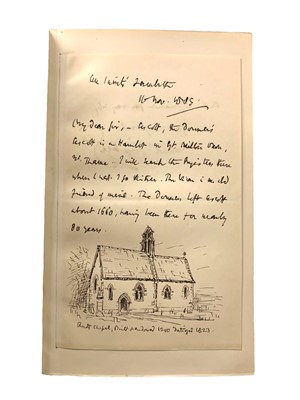 All Saints' Lambeth
16 Nov. 1885
My Dear Sir, – Ascott, the Dormer's
Ascott is a Hamlet in Gt. Milton Oxon,
nr. Thame. – I will search the Registers there
when I next go thither. The Vicar is an old
friend of mine. – The Dormers left Ascott
about 1660, having been there for nearly
80 years.
Chapel, Built 1200 Destroyed 1823.